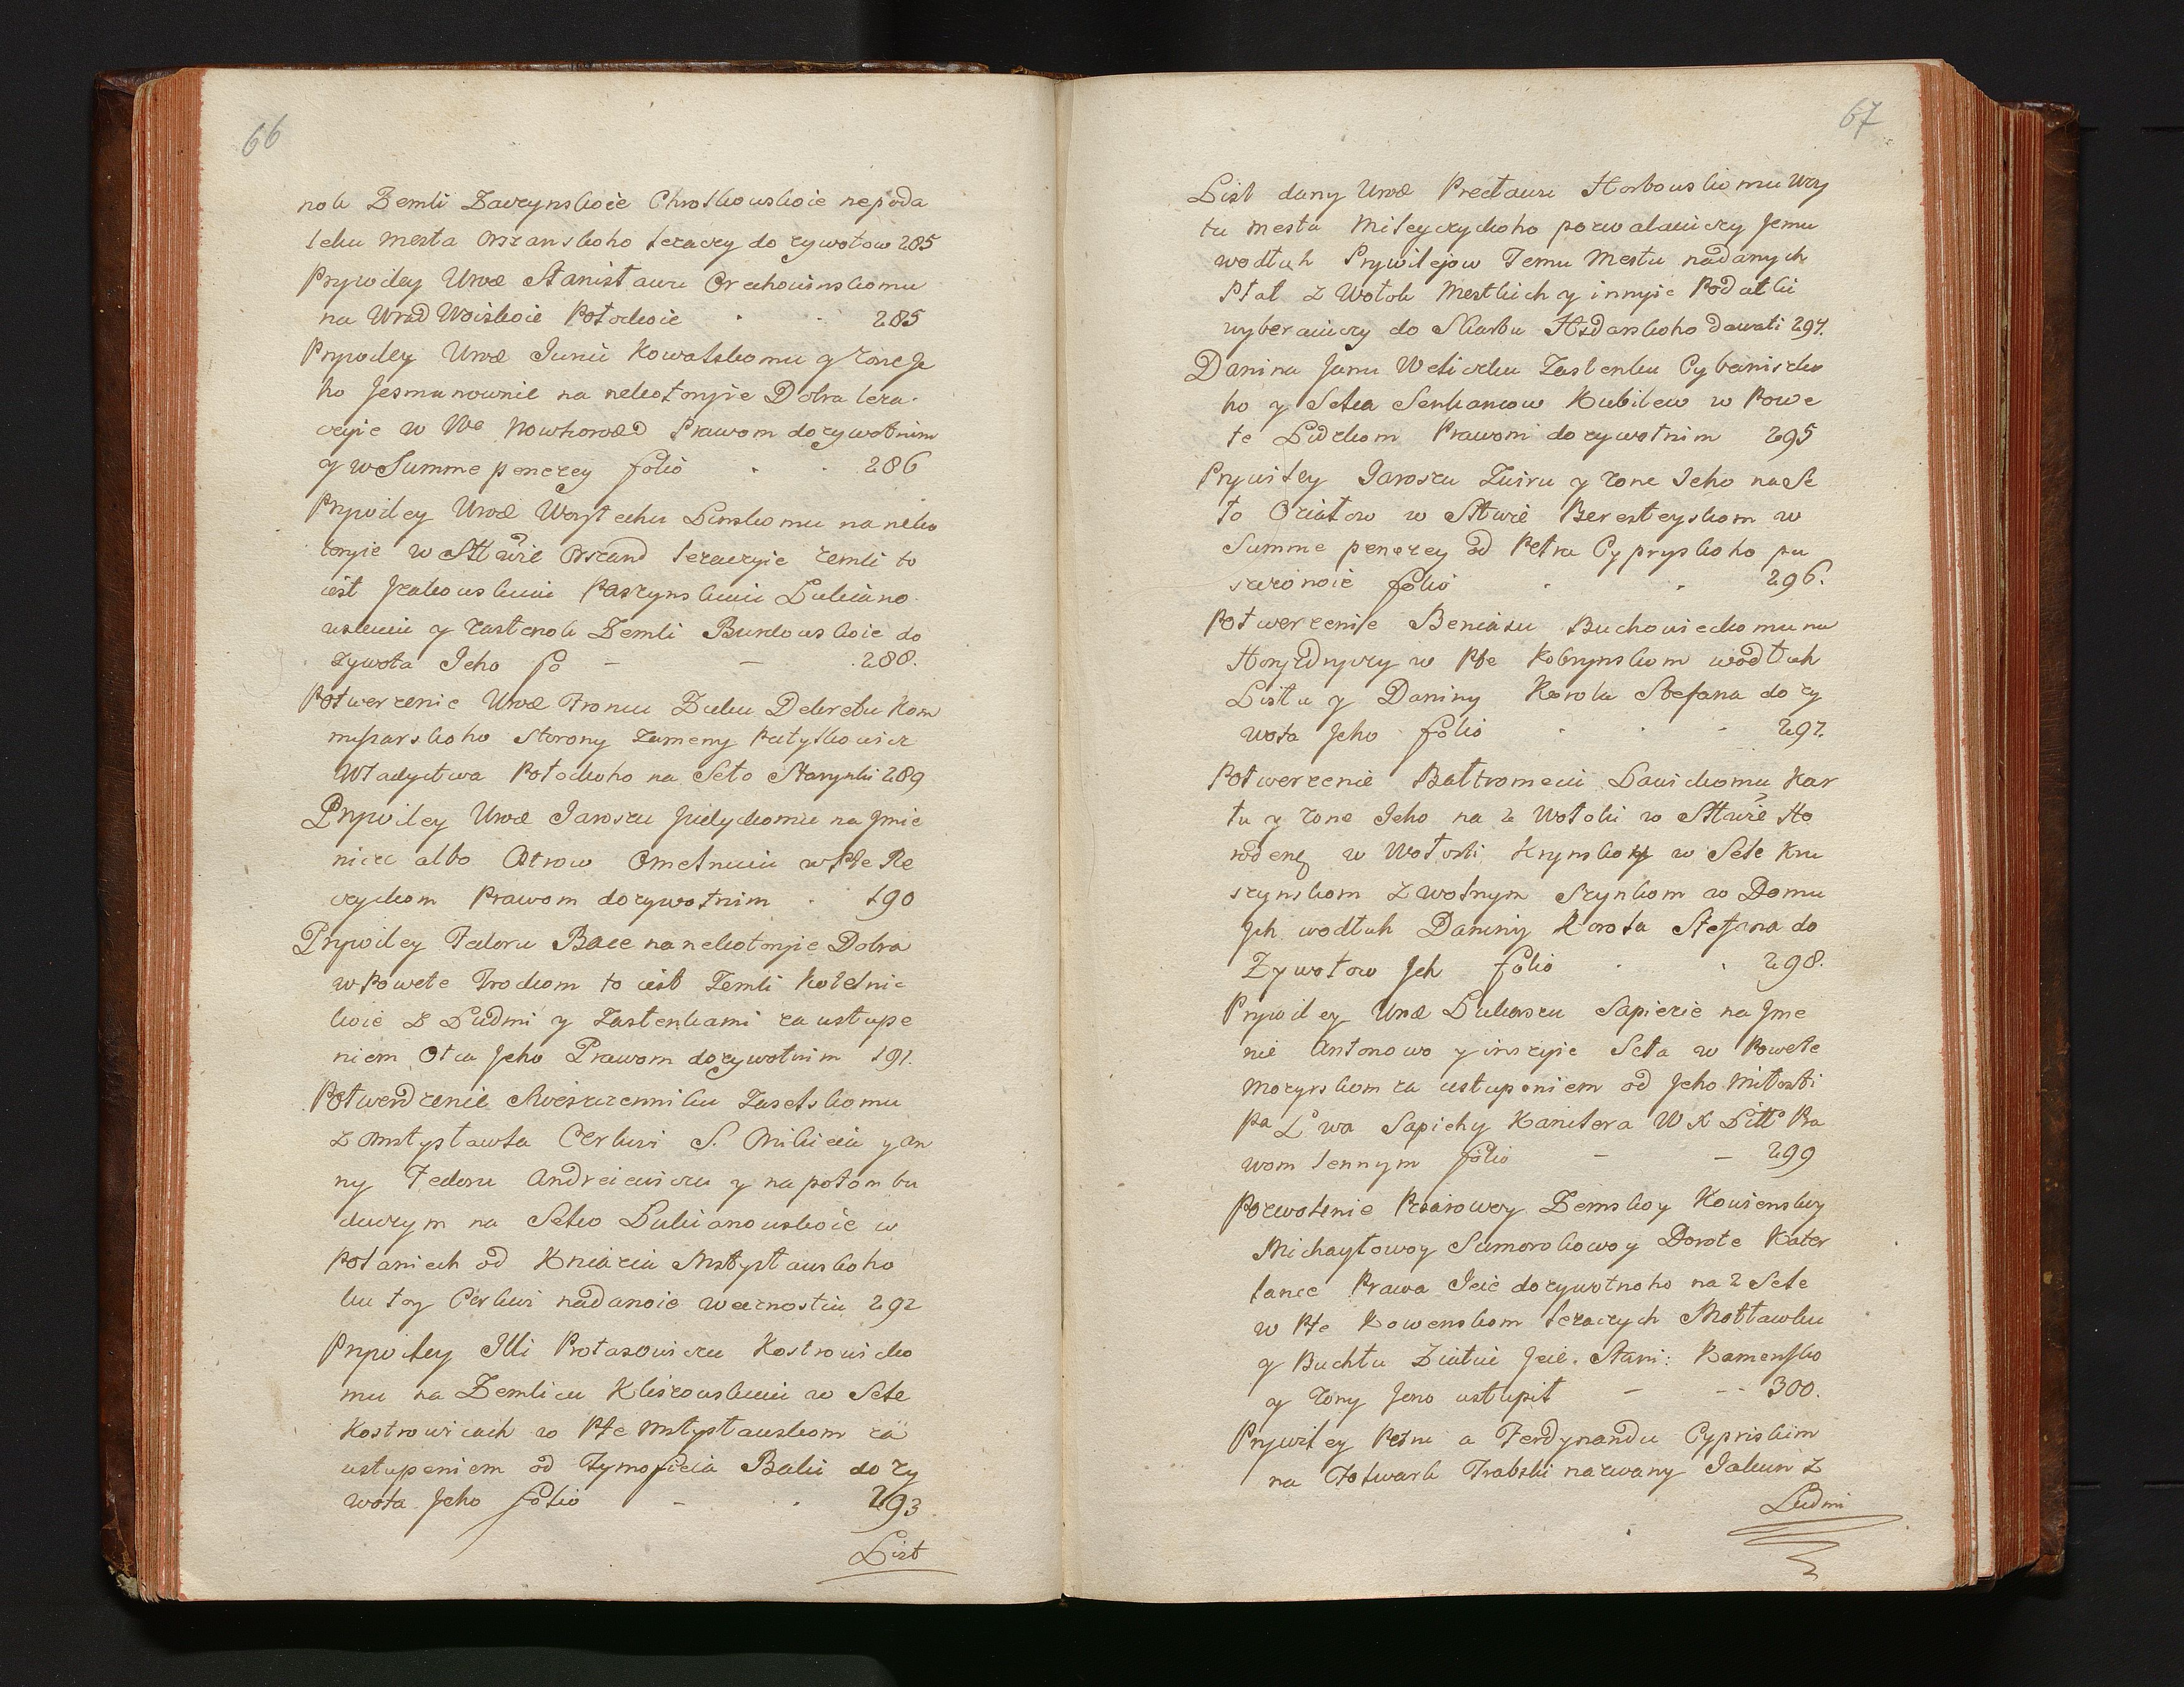 66
nok Zemli Zaczynskoie Chrostkowskoie nepoda
leku Mesta Orszanskoho lezaczy do zywotow 285
Prywiley Uroz Stanisławu Orechowinskomu
na Urad Woiskoie Połockoie 285
Prywiley Uroz Iuriu Kowalskomu y zone Je
ho Jesmanownie na nekotoryie Dobra leza-
czyie w We Nowhorod Prawom dozywotnim
y w Summe penezey folio 286
Prywiley Uroz Woytechu Linskomu na neko
toryie w Sttwie Orszand lezaczyie zemli to
iest Jzakowskuiu Paszynskuiu Lukiano
wskuiu y zastenok Zemli Burdowskoie do
zywota Jeho fo 288.
Potwerzenie Uroz Froncu Zuku Dekretu Kom
misarskoho Storony zameny Patyskowicz
Władyctwa Połockoho na Seło Starynki 289
Prywiley Uroz Iaroszu Jielyckomu na Jmie
nicze albo Ostrow Omelnuiu w Pte Re
czyckom Prawom dozywotnim 190
Prywiley Fedoru Bace na nekotoryie Dobra
w Powete Trockom to iest Zemli Kotelnic
koie Z Ludmi y Zastenkami za ustupe
niem Otca Jeho Prawom dozywotnim 191.
Potwerdzenie Swieszczenniku Zaselskomu
z Mstysławla Cerkwi S. Mikieiu y an
ny Fedoru Andreiewiczu y na potom bu
duczym na Sełko Lukianowskoie w
Połaniech od Kniazia Mstysławskoho
ku toy Cerkwi nadanoie wecznostiu 292
Prywiley Illi Protasowiczu Kostrowicko
mu na Zemlicu Kliszowskuiu w Sele
Kostrowicach w Pte Mstysławskom za
ustupeniem od Tymofieia Baki do zy
wota Jeho folio 293
List
67
List dany Uroz Precławu Horbowskomu Woy
tu mesta Mileyczyckoho pozwalaiuczy Jemu
wodłuh Prywilejow Temu Mestu nadanych
Płat z Wołok Mestkich y innyie Podatki
wyberaiuczy do Skarbu Hsdarskoho dawati 294.
Danina Janu Weliczku Zastenku Cybaniszko
ho y Sełca Senkancow Kubilew w Powe
te Lidzkom Prawom dozywotnim 295
Prywiley Iaroszu Zwiru y zone Jeho na Se
ło Oziatow w Sttwie Beresteyskom w
Summe penezey od Petra Cypryskoho pu
szczonoie folio 296.
Potwerzenie Beniaszu Buchowieckomu na
Horydnyczy w Pte Kobrynskom wodłuh
Listu y Daniny Korola Stefana do zy
wota Jeho folio 297.
Potwerzenie Bałtromeiu Lawickomu Kar
tu y zone Jeho na 2 Wołoki w Sttwie Ho
rodeng w Wołosti Krynskoy w Sele Kru
szynskom z wolnym Szynkom w Domu
Jch wodłuh Daniny Korola Stefana do
Zywotow Jch folio 298.
Prywiley Uroz Lukaszu Sapiezie na Jme
nie Antonowo y inszyie Seła w Powete
Mozyrskom za ustupeniem od Jeho Miłosti
Pa Lwa Sapiehy Kanclera W X Litt Pra
wom lennym folio 299
Pozwolenie Pisarowoy Zemskoy Kowienskoy
Michayłowoy Sumorokowoy Dorote Kater
lance Prawa Jeie dozywotnoho na 2 Sele
w Pte Kowenskom lezaczych Mołtawku
y Buchtu Ziatiu Jeie. Stani: Kamensko
y zony Jeho ustupit 300.
Prywiley Petru a Ferdynandu Cypriskim
na Fołwark Trabski nazwany Jakun z
Ludmi